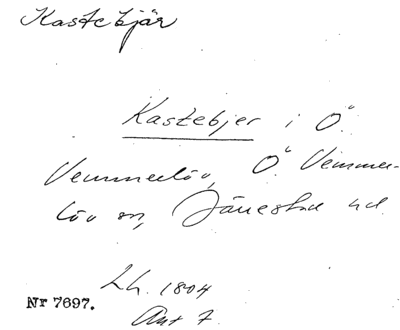 Kastebjär
Kastebjer i Ö.
Vemmerlöv, Ö. Vemmer-
löv sn, Järrestad hd
Lh. 1804
Akt 7
Nr 7697.